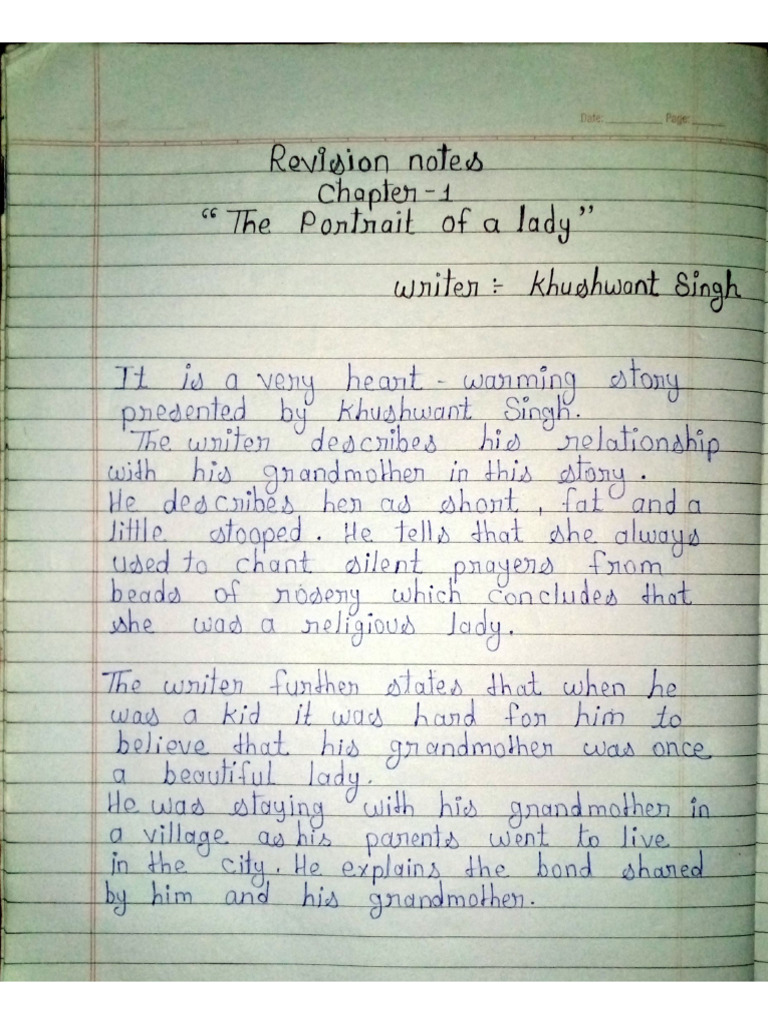 Date: Page:
Revision notes
Chapter-1
"The Portrait of a lady"
writer :- Khushwant Singh
It is a very heart - warming story
presented by Khushwant Singh.
The writer describes his relationship
with his grandmother in this story.
He describes her as short, fat and a
little stooped. He tells that she always
used to chant silent prayers from
beads of rosery which concludes that
she was a religious lady.
The writer further states that when he
was a kid it was hard for him to
believe that his grandmother was once
a beautiful lady.
He was staying with his grandmother in
a village as his parents went to live
in the city. He explains the bond shared
by him and his grandmother.